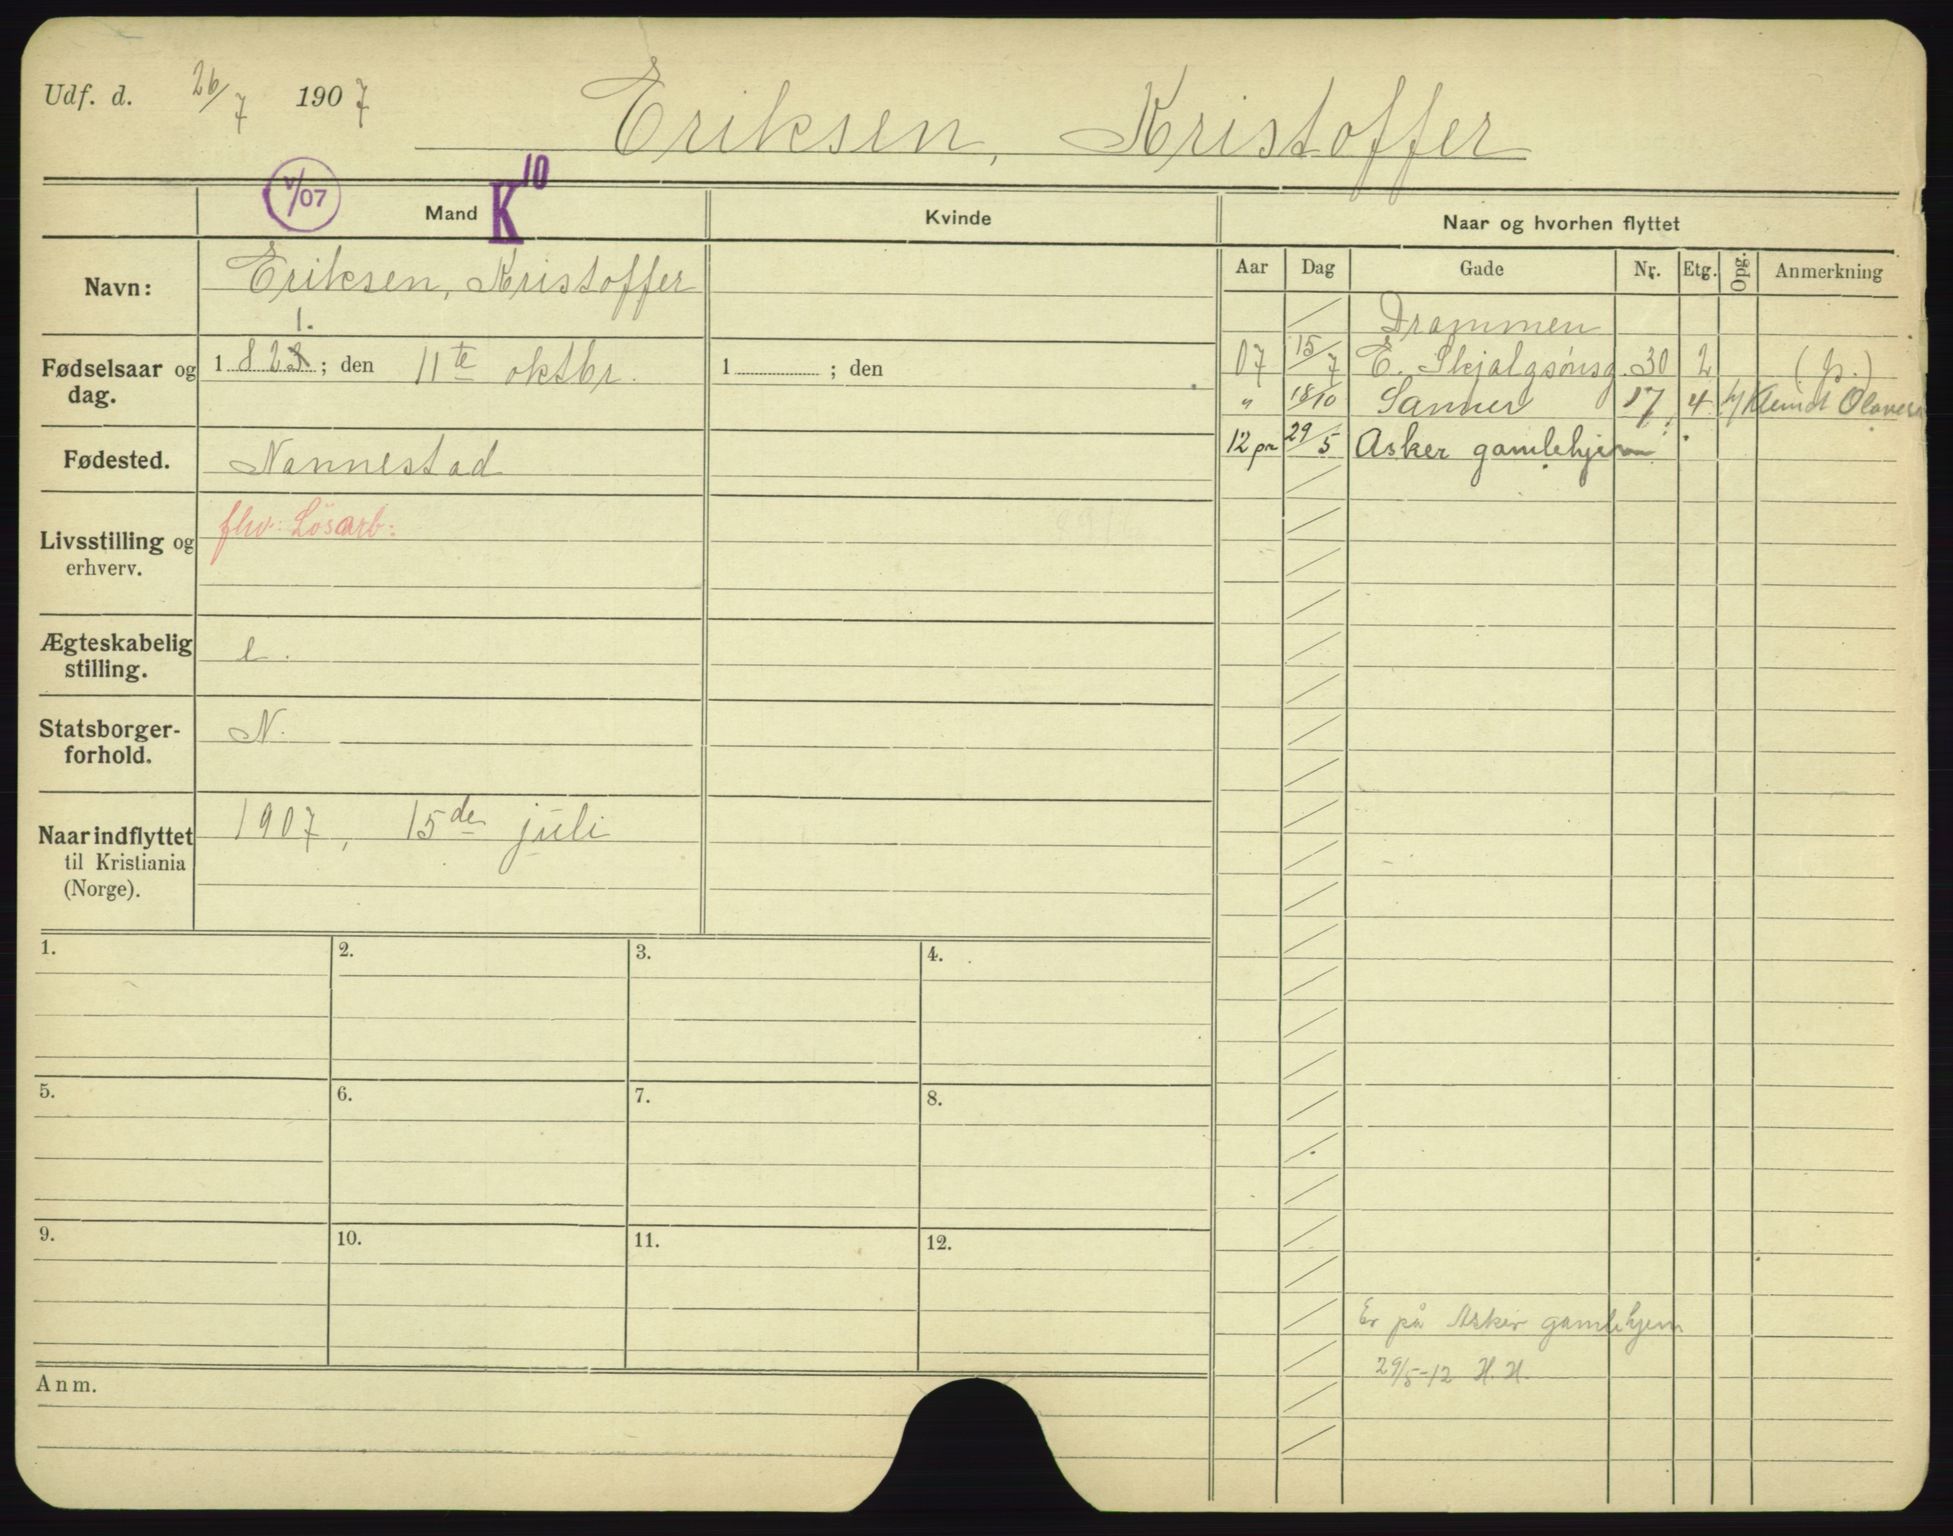 Udf. d. 26/7 1907
Eriksen, Kristoffer
V/07
Mand K 10
Kvinde
Naar og hvorhen flyttet
Aar Dag Gade Nr. Etg. Opg. Anmerkning
Navn: Eriksen, Kristoffer
Drammen
1.
Fødselsaar og dag. 1823; den 11te oktbr. 1 ; den
07 15/7 E. Skjalgsönsg. 30 2 (p.)
" 18/10 Sanner 17 4 Olavesen
12 pr 29/5 Asker gamlehjem
Fødested. Nannestad
Livsstilling og erhverv. fhv: Løsarb:
Ægteskabelig stilling. e.
Statsborger-
forhold. N.
Naar indflyttet
til Kristiania
(Norge). 1907, 15de juli
1. 2. 3. 4.
5. 6. 7. 8.
9. 10. 11. 12.
Er på Asker gamlehjem
29/5-12 H.H.
Anm.